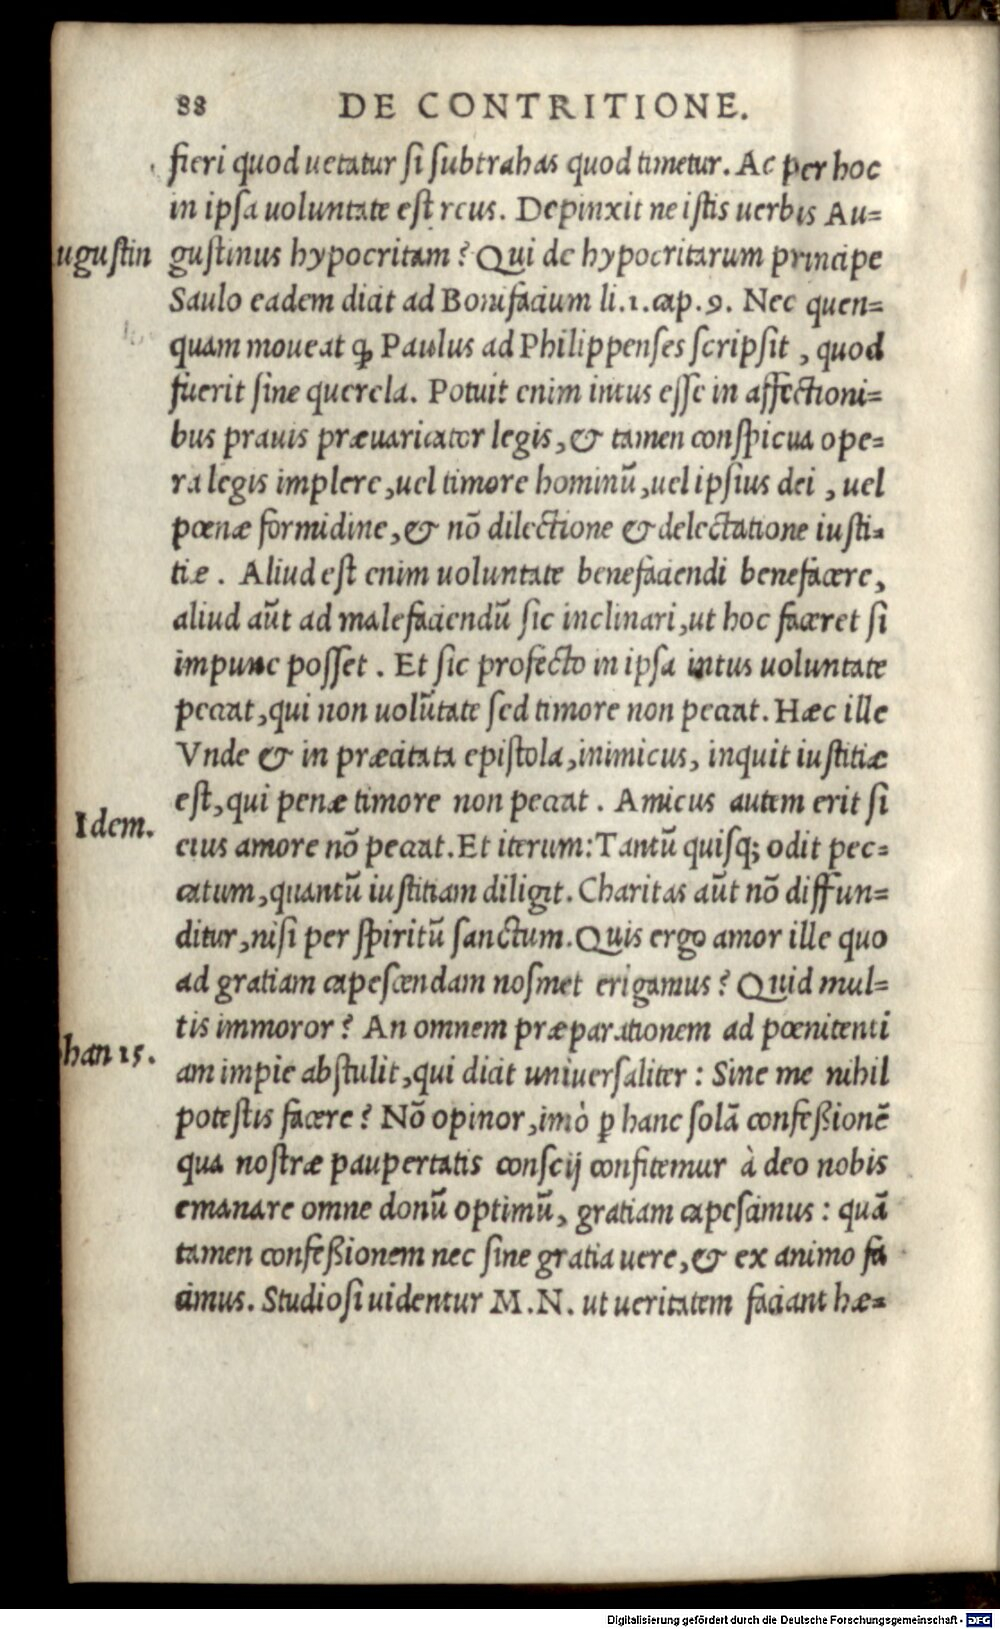 88 DE CONTRITIONE.
fieri quod uetatur si subtrahas quod timetur. Ac per hoc
in ipsa uoluntate est reus. Depinxit ne istis uerbis Au=
ugustin
gustinus hypocritam? Qui de hypocritarum principe
Saulo eadem dicit ad Bonifacium li.1.cap.9. Nec quen=
quam moueat ꝙ Paulus ad Philippenses scripsit, quod
fuerit sine querela. Potuit enim intus esse in affectioni=
bus prauis præuaricator legis, & tamen conspicua ope=
ra legis implere, uel timore hominũ, uel ipsius dei, uel
pœnæ formidine, & nõ dilectione & delectatione iusti=
tiæ. Aliud est enim uoluntate benefaciendi benefacere,
aliud aũt ad malefaciendũ sic inclinari, ut hoc faceret si
impune posset. Et sic profecto in ipsa intus uoluntate
peccat, qui non uolũtate sed timore non peccat. Hæc ille
Vnde & in præcitata epistola, inimicus, inquit iustitiæ
est, qui penæ timore non peccat. Amicus autem erit si
Idem.
eius amore nõ peccat. Et iterum: Tantũ quisq; odit pec=
catum, quantũ iustitiam diligit. Charitas aũt nõ diffun=
ditur, nisi per spiritũ sanctum. Quis ergo amor ille quo
ad gratiam capescendam nosmet erigamus? Quid mul=
tis immoror? An omnem præparationem ad pœnitenti
han 15.
am impie abstulit, qui dicit uniuersaliter: Sine me nihil
potestis facere? Nõ opinor, imò ꝑ hanc solã confeßionẽ
qua nostræ paupertatis conscij confitemur à deo nobis
emanare omne donũ optimũ, gratiam capescimus: quã
tamen confeßionem nec sine gratia uere, & ex animo fa
cimus. Studiosi uidentur M.N. ut ueritatem faciant hæ=
Digitalisierung gefördert durch die Deutsche Forschungsgemeinschaft - DFG